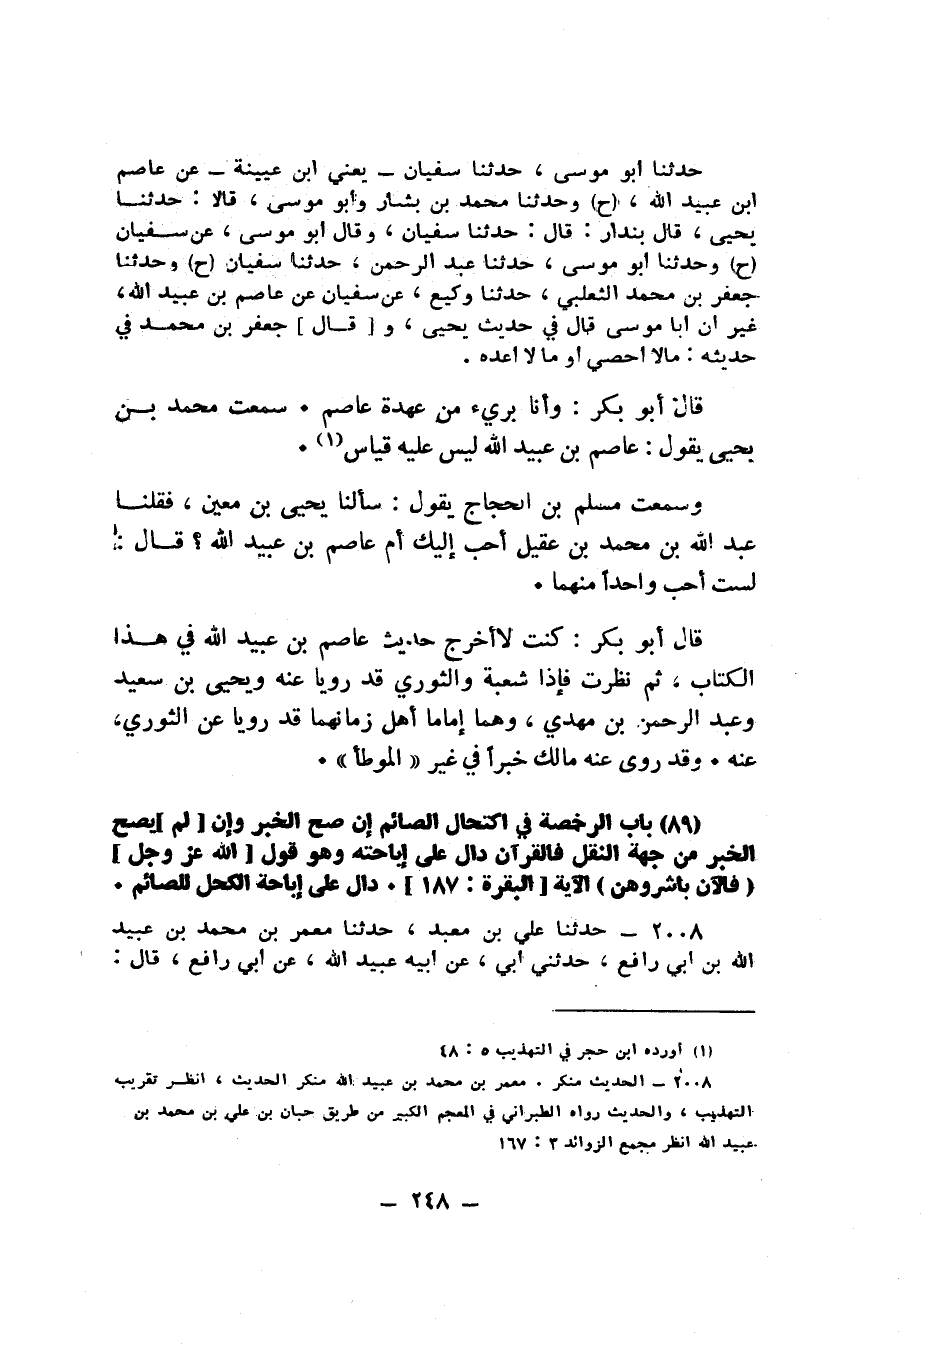 حدثنا أبو موسى ، حدثنا سفيان – يعني ابن عيينة – عن عاصم
ابن عبيد الله ، (ح) وحدثنا محمد بن بشار وأبو موسى ، قالا : حدثنــا
يحيى ، قال بندار : قال : حدثنا سفيان ، وقال أبو موسى ، عن سـفيان
(ح) وحدثنا أبو موسى ، حدثنا عبد الرحمن ، حدثنا سفيان (ح) وحدثنا
جعفر بن محمد الثعلبي ، حدثنا وكيع ، عن سفيان عن عاصم بن عبيد الله،
غير أن أبا موسى قال في حديث يحيى ، و [ قــال ] جعفر بن محمـد في
حديثه : مالا أحصي أو ما لا أعده .
قال أبو بكر : وأنا بريء من عهدة عاصم . سمعت محمد بــن
يحيى يقول : عاصم بن عبيد الله ليس عليه قياس(١) .
وسمعت مسلم بن الحجاج يقول : سألنا يحيى بن معين ، فقلنــا
عبد الله بن محمد بن عقيل أحب إليك أم عاصم بن عبيد الله ؟ قــال :
لست أحب واحداً منهما .
قال أبو بكر : كنت لا أخرج حديث عاصم بن عبيد الله في هــذا
الكتاب ، ثم نظرت فإذا شعبة والثوري قد رويا عنه ويحيى بن سعيد
وعبد الرحمن بن مهدي ، وهما إماما أهل زمانهما قد رويا عن الثوري،
عنه . وقد روى عنه مالك خبراً في غير « الموطأ » .
(٨٩) باب الرخصة في اكتحال الصائم إن صح الخبر وإن [ لم ] يصح
الخبر من جهة النقل فالقرآن دال على إباحته وهو قول [ الله عز وجل ]
( فالآن باشروهن ) الآية [ البقرة : ١٨٧ ] . دال على إباحة الكحل للصائم .
٢٠٠٨ – حدثنا علي بن معبد ، حدثنا معمر بن محمد بن عبيد
الله بن أبي رافع ، حدثني أبي ، عن أبيه عبيد الله ، عن أبي رافع ، قال :
(١) أورده ابن حجر في التهذيب ٥ : ٤٨
٢٠٠٨ – الحديث منكر . معمر بن محمد بن عبيد الله منكر الحديث ، انظـر تقريب
التهذيب ، والحديث رواه الطبراني في المعجم الكبير من طريق حبان بن علي بن محمد بن
عبيد الله انظر مجمع الزوائد ٣ : ١٦٧
– ٢٤٨ –